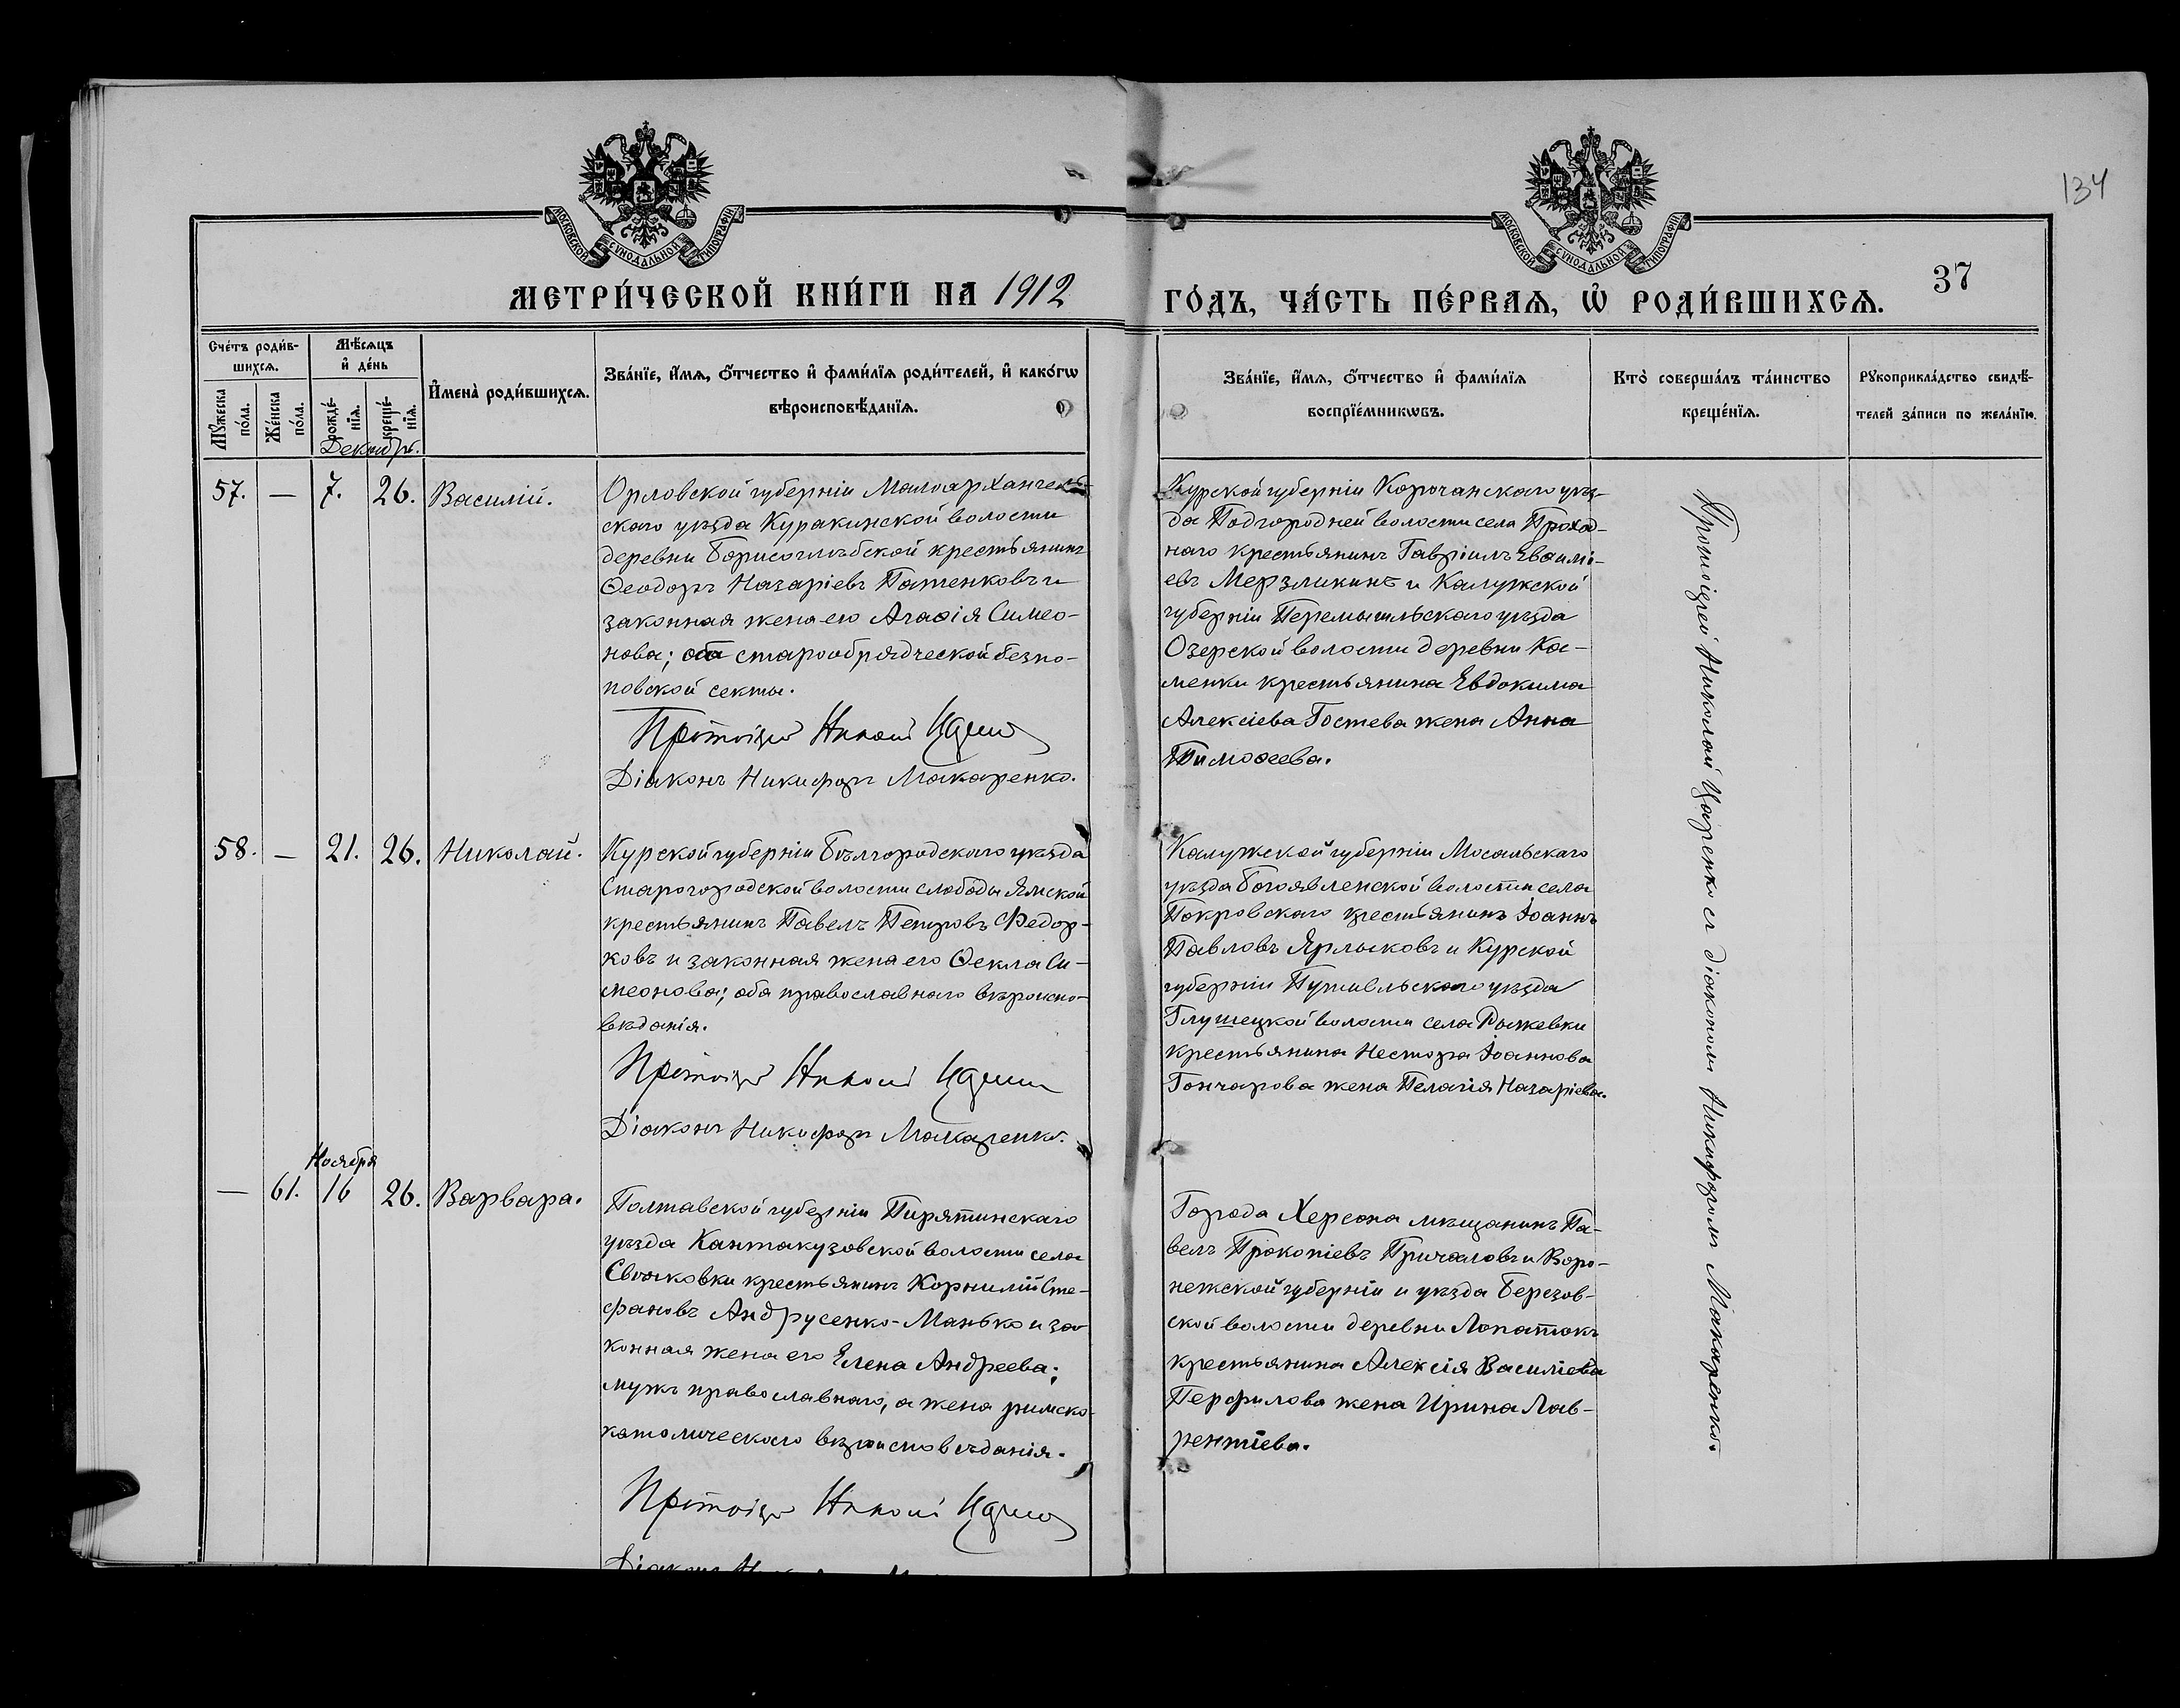 134
МОСКОВСКОЙ СѴНОДАЛЬНОЙ ТИПОГРАФІИ
МОСКОВСКОЙ СѴНОДАЛЬНОЙ ТИПОГРАФІИ
МЕТРИ́ЧЕСКОЙ КНИ́ГИ НА 1912
ГО́ДЪ, ЧА́СТЬ ПЕ́РВАѦ, Ѽ РОДИ́ВШИХСѦ.
37
Сче́тъ роди́в-
шихсѧ.
Мꙋ́жеска по́ла.
Же́нска по́ла.
Мѣ́сѧцъ
и҆ де́нь
рожде́-
нїѧ.
креще́-
нїѧ.
Декабрь.
И҆мена̀ роди́вшихсѧ.
Зва́нїе, и҆́мѧ, ѻ҆́тчество и҆ фами́лїѧ роди́телей, и҆ како́гѡ
вѣроисповѣ́данїѧ.
Зва́нїе, и҆́мѧ, ѻ҆́тчество и҆ фами́лїѧ
воспрїе́мникѡвъ.
Кто̀ соверша́лъ та́инство
креще́нїѧ.
Рꙋкоприкла́дство свидѣ́-
телей за́писи по жела́нїю.
57. — 7. 26. Василій.
Орловской губерніи Малоархангель-
скаго уѣзда Куракинской волости
деревни Борисоглѣбской крестьянинъ
Ѳеодоръ Назаріевъ Пашенковъ и
законная жена его Агаѳія Симео-
нова; оба старообрядческой безпо-
повской секты.
Протоіерей Николай Царенко
Діаконъ Никифоръ Макаренко.
Курской губерніи Корочанскаго уѣз-
да Подгородней волости села Проход-
наго крестьянинъ Гавріилъ Евѳимі-
евъ Мерзликинъ и Калужской
губерніи Перемышльскаго уѣзда
Озерской волости деревни Ка-
менки крестьянина Евдокима
Алексіева Гостева жена Анна
Тимоѳеева.
58. — 21. 26. Николай.
Курской губерніи Бѣлгородскаго уѣзда
Старогородской волости слободы Ямской
крестьянинъ Павелъ Петровъ Федор-
ковъ и законная жена его Ѳекла Си-
меонова; оба православнаго вѣроиспо-
вѣданія.
Протоіерей Николай Царенко
Діаконъ Никифоръ Макаренко.
Калужской губерніи Мосальскаго
уѣзда Богоявленской волости села
Покровскаго крестьянинъ Іоаннъ
Павловъ Ярлыковъ и Курской
губерніи Путивльскаго уѣзда
Глушецкой волости села Рыжевки
крестьянина Нестора Іоаннова
Гончарова жена Пелагія Назаріева.
Ноября
— 61. 16 26. Варвара.
Полтавской губерніи Пирятинскаго
уѣзда Кантакузовской волости села
крестьянинъ Корнилій Сте-
фановъ Андрусенко-Манько и за-
конная жена его Елена Андреева;
мужъ православнаго, а жена римско-
католическаго вѣроисповѣданія.
Протоіерей Николай Царенко
Города Херсона мѣщанинъ Па-
велъ Прокопіевъ Причаловъ и Воро-
нежской губерніи и уѣзда Березов-
ской волости деревни Лопатокъ
крестьянина Алексія Василіева
Перфилова жена Ирина Лав-
рентіева.
Протоіерей Николай Царенко съ діакономъ Никифоромъ Макаренко.